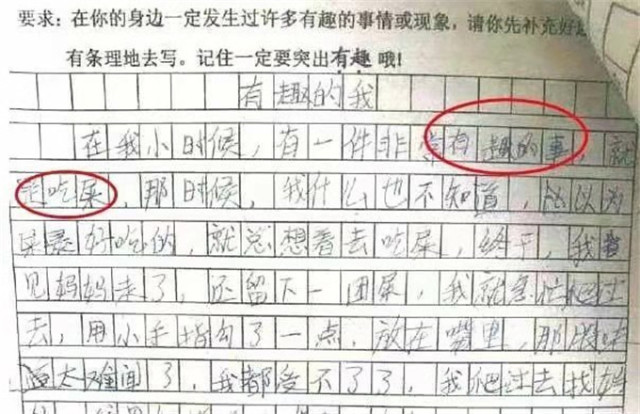 要求：在你的身边一定发生过许多有趣的事情或现象，请你先补充好
有条理地去写。记住一定要突出有趣哦！
有趣的我
在我小时候，有一件非常有趣的事，就
是吃屎，那时候，我什么也不知道，总以为
屎最好吃的，就总想着去吃屎，终于，我看
见妈妈走了，还留下一团屎，我就急忙爬过
去，用小手指勾了一点，放在嘴里，那股味
道太难闻了，我都受不了了，我爬过去找妈